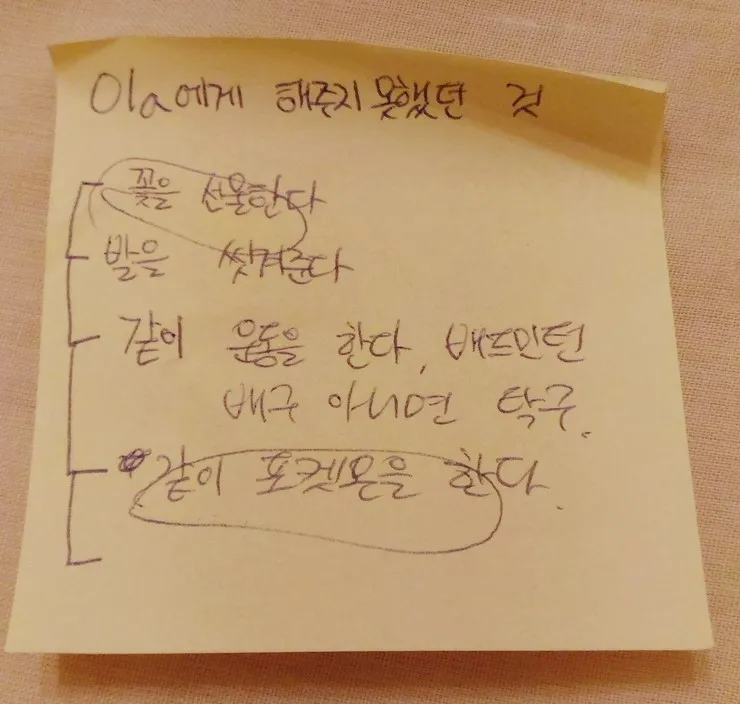 Ola에게 해주지 못했던 것
꽃을 선물한다
발을 씻겨준다
같이 운동을 한다, 배드민턴
배구 아니면 탁구.
같이 포켓몬을 한다.